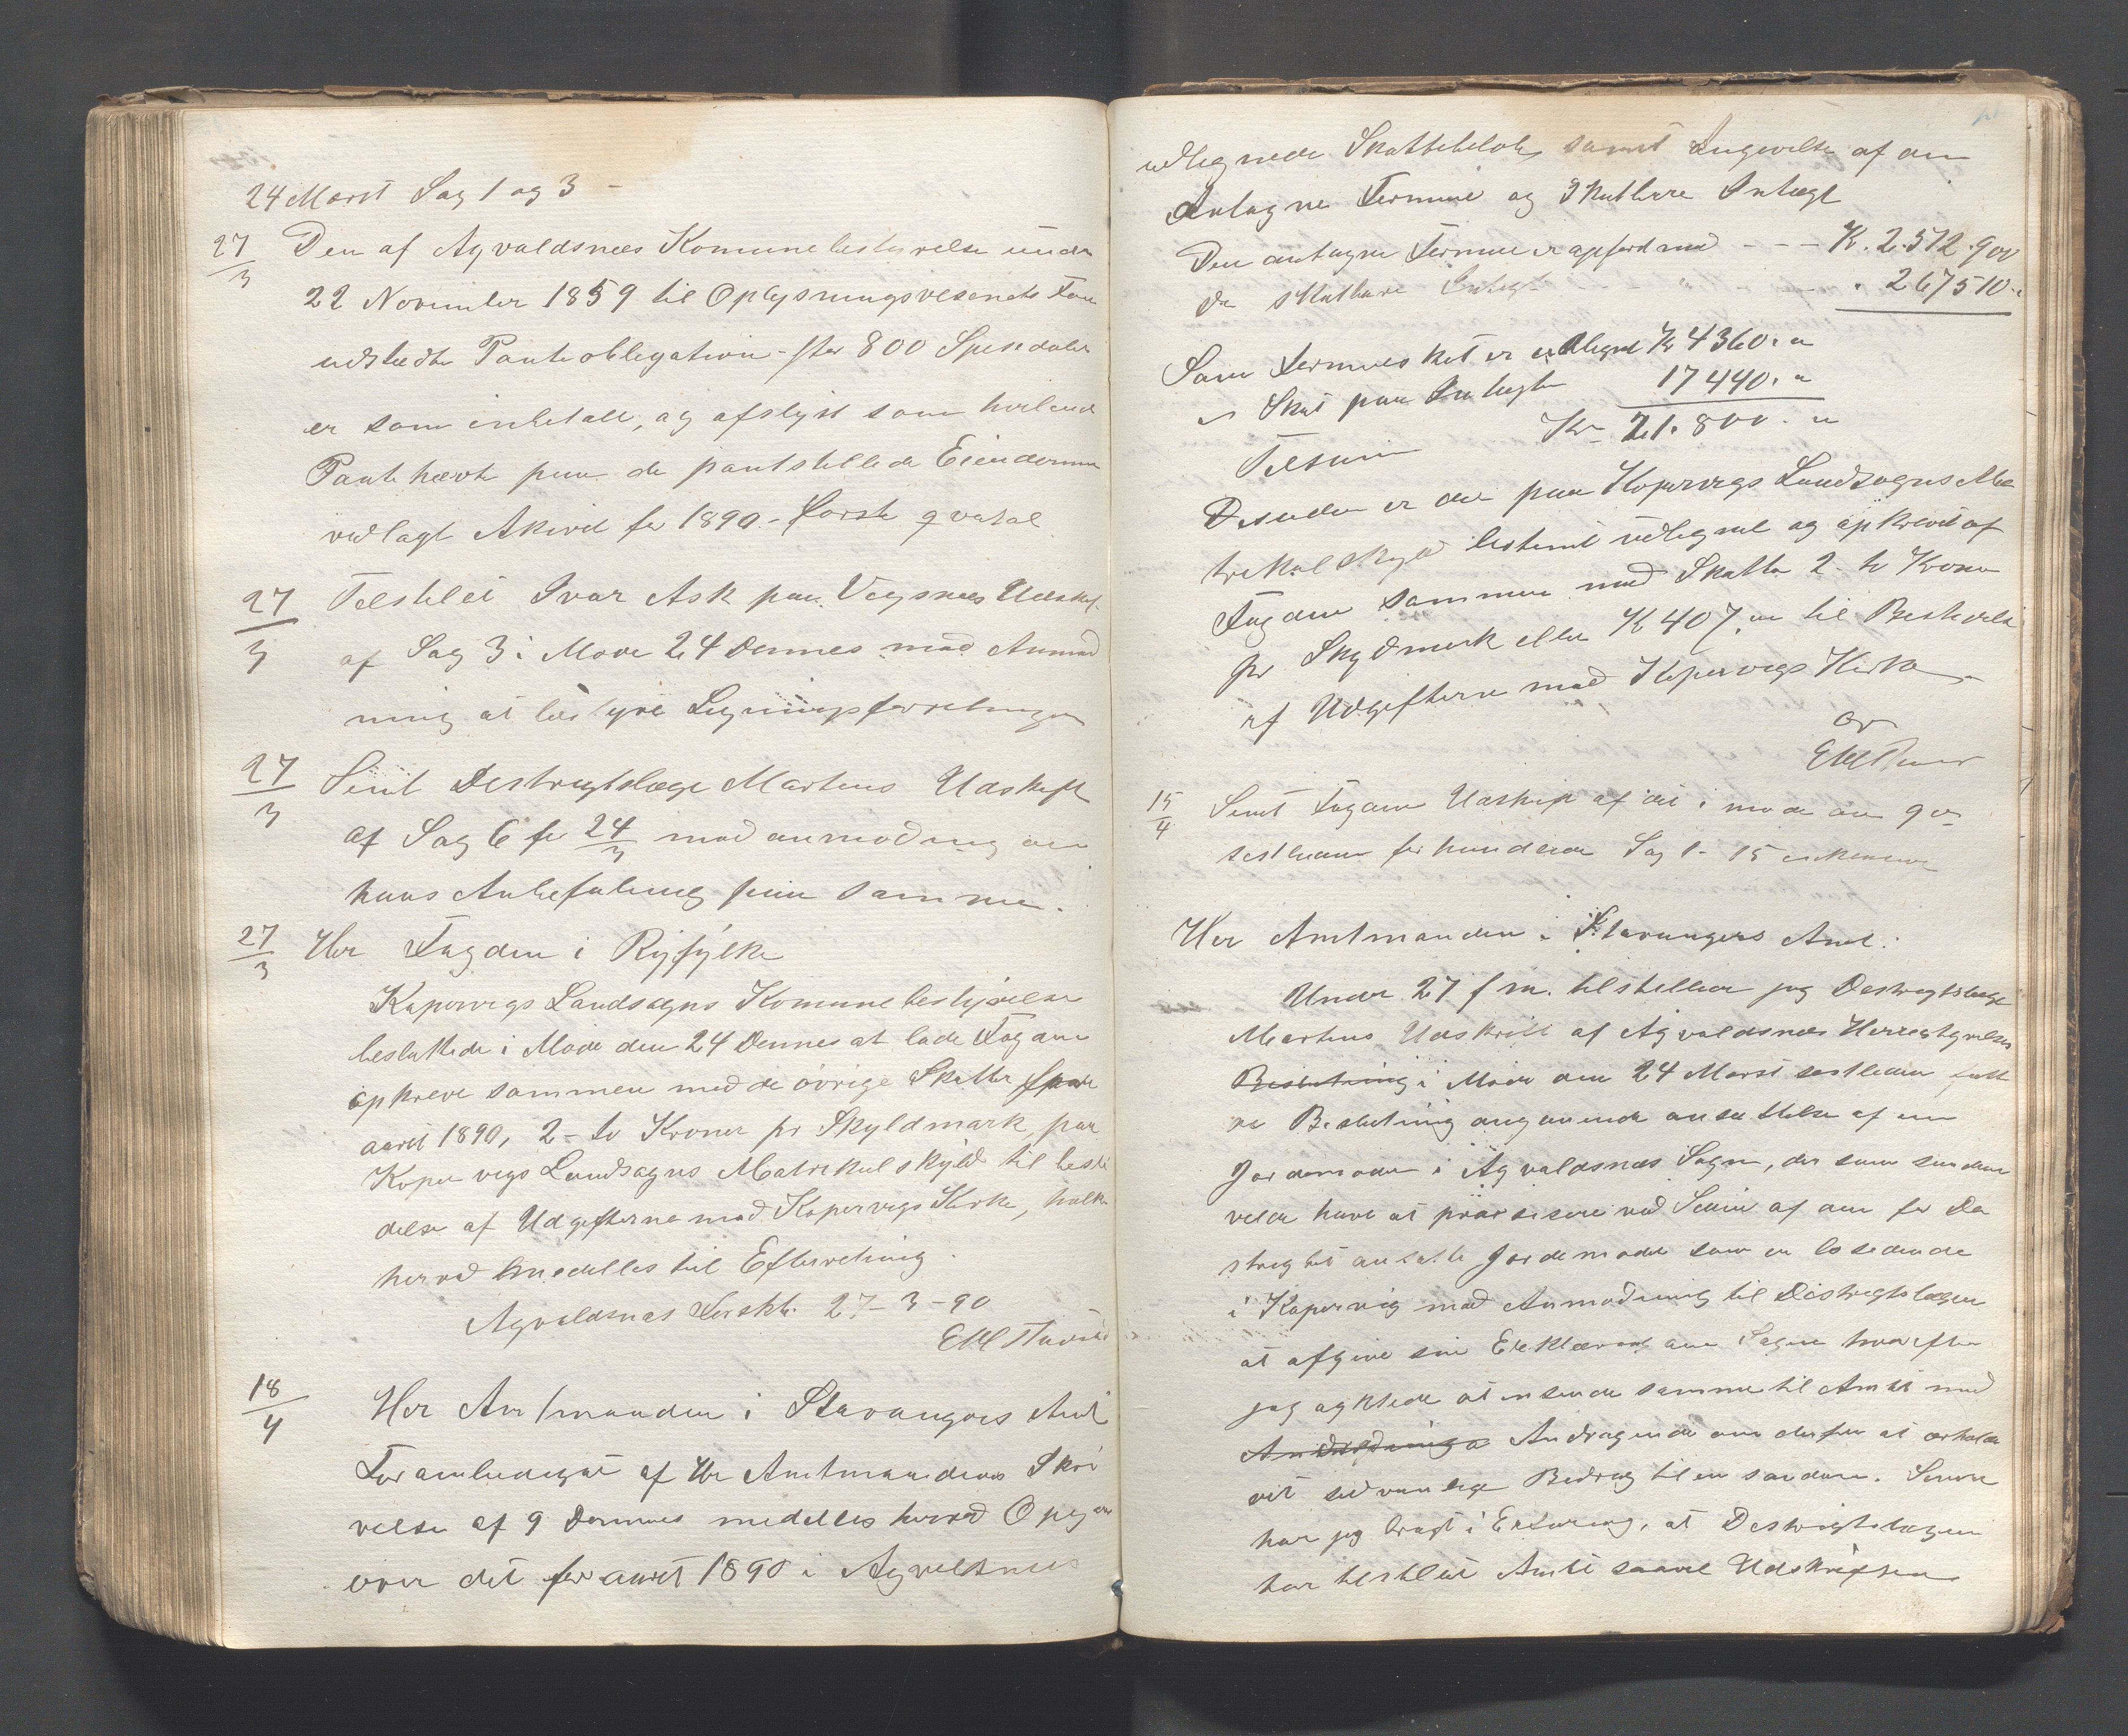 24 Marst Sag 1 og 3 -
27/3 Den af Agvaldsnæs Komunebestyrelse under
22 November 1859 til Oplysningsvesenets Fon
udstedte Panteobligation - stor 800 Spesidaler
er som inbetalt, og afslyst som heilend
Pante hævte paa de pantstillede Eiendomme
vedlagt Akivet for 1890 - første qvatal
27/3 Telstilet Ivar Ask paa Vigsnes Udskf.
af Sag 3 i Møde 24 Dennes med Anmod
ning at bestyre Ligningsforretningen
27/3 Sent Destrigtslæge Martens Udskrift
af Sag 6 for 24/3 med anmodning om
hans Anbefaling paa samme.
27/3 Her Fogden i Ryfylke
Kopervigs Landsogns Komunebestyrelse
besluttede i Møde den 24 Dennes at lade Fogden
opkreve sammen med de øvrige Skatter for
aaret 1890, 2 - to Kroner pr Skyldmark, paa
Kopervigs Landsogns Matrikulskyld til bestri
delse af Udgifterne med Kopervigs Kirke, hvilke
herved meddeles til Efterretning.
Agvaldsnæs Forskb. 27-3-90
18/4 Her Amtmanden i Stavangers Amt
Foranlediget af Hr Amtmandens Skri
velse af 9 Dennes meddeles herved Opgave
over det for aaret 1890 i Agvaldsnæs
udlignede Skattebeløb, samt Angivelse af den
Antagne Formue og Skatbare Indtægt
Den antagne Formue er opført med - - - K. 2.572.900
Den skatbare Indtægt - - - " - - . 267510 "
Som Formueskat er udlignet Kr 4360. "
" Skat paa Indtægten 17440. "
Tilsamen Kr 21.800. "
Desuden er der paa Kopervigs Landsogns Ma
trikulskyld bestemt udlignet og opkrevet af
Fogden sammen med Skatten 2 - to Kroner
pr Skyldmark eller K 407 " til Bestridelse
af Udgifterne med Kopervigs Kirke
15/4 Sent Fogden Udskrift af det i møde den 9de
sistleden forhandlede Sag 1 - 15
Her Amtmanden i Stavangers Amt.
Under 27 f m. tilstillede jeg Destrigtslæge
Martens Udskrift af Agvaldsnæs Herredstyrelses
Beslutning i Møde den 24 Marst sistleden fatt
ne Beslutning angaaende ansættelse af en
Jordemoder i Agvaldsnæs Sogn, der som saadan
vilde have at praksisere ved Siden af den for De
strigtet ansatte Jordemoder som er bosedende
i Kopervig med Anmodning til Distrigtslægen
at afgive sin Erklæring om Sagen hvorefter
jeg agtede at insende samme til Amtet med
Anmodning Andragende om derfor at erholde
vet sedvanlige Bedrag til en saadan. Senere
har jeg bragt i Erfaring, at Destrigtslægen
har tilstilet Amtet saavel Udskriften